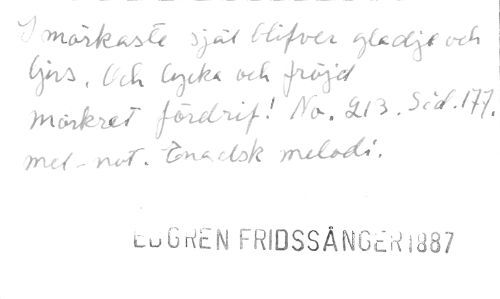 I mörkaste själ blifver glädje och
ljus. Och lycka och fröjd
mörkret fördrif! No. 213. Sid. 177.
mel-not. melodi.
EDGREN FRIDSSÅNGER 1887